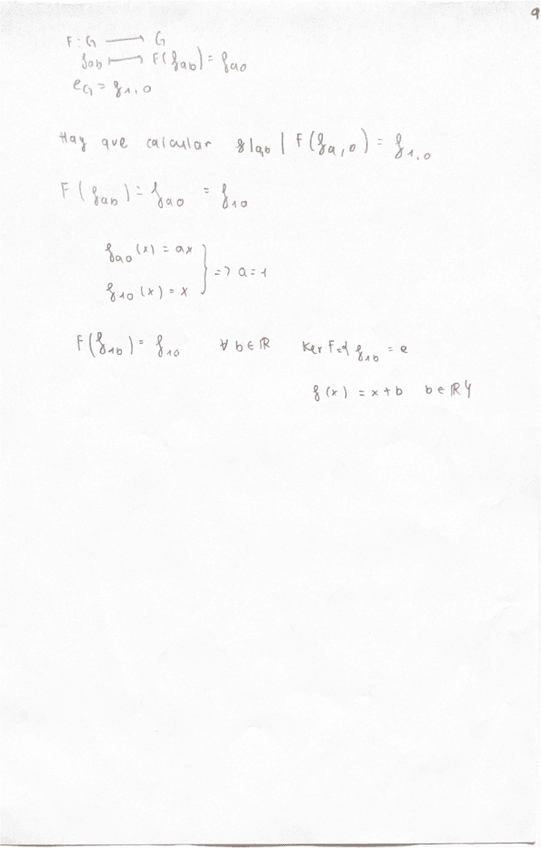 9
F: G ⟶ G
f_ab ⟼ F(f_ab) = f_a0
e_G = f_1,0
Hay que calcular f|ab | F(f_a,0) = f_1,0
F(f_ab) = f_a0 = f_10
f_a0 (x) = ax
} => a = 1
f_10 (x) = x
F(f_1b) = f_10 ∀ b ∈ ℝ Ker F = { f_1b = e
f(x) = x + b b ∈ ℝ }